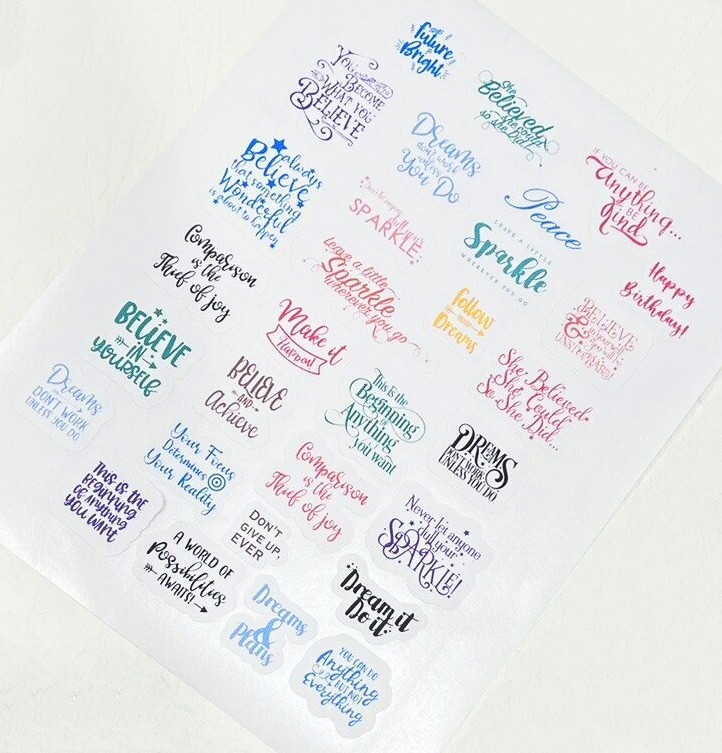 Future
Bright
You
Become
What You
Believe
She
Believed
she could
so she did
Dreams
don't work
unless
You Do
IF YOU CAN BE
Anything...
BE
Kind
Believe always
that something
Wonderful
is about to happen
SPARKLE
Peace
LEAVE A LITTLE
Sparkle
WHEREVER YOU GO
Happy
Birthday!
Comparison
is the
Thief of joy
Leave a little
Sparkle
wherever you go
follow
your
Dreams
BELIEVE
&
UNSTOPPABLE
BELIEVE
IN
YOURSELF
Make it
Happen!
She Believed
She Could
So She Did...
BELIEVE
AND
Achieve
This is the
Beginning
of
Anything
you want
Dreams
DON'T WORK
UNLESS YOU DO
DREAMS
DON'T WORK
UNLESS YOU DO
Your Focus
Determines
Your Reality
Comparison
is the
Thief of joy
This is the
Beginning
of Anything
YOU WANT
DON'T
GIVE UP,
EVER
Never let anyone
dull your
SPARKLE!
A WORLD OF
Possibilities
AWAITS!
Dream it
Do it
Dreams
&
Plans
YOU CAN DO
Anything
BUT NOT
Everything